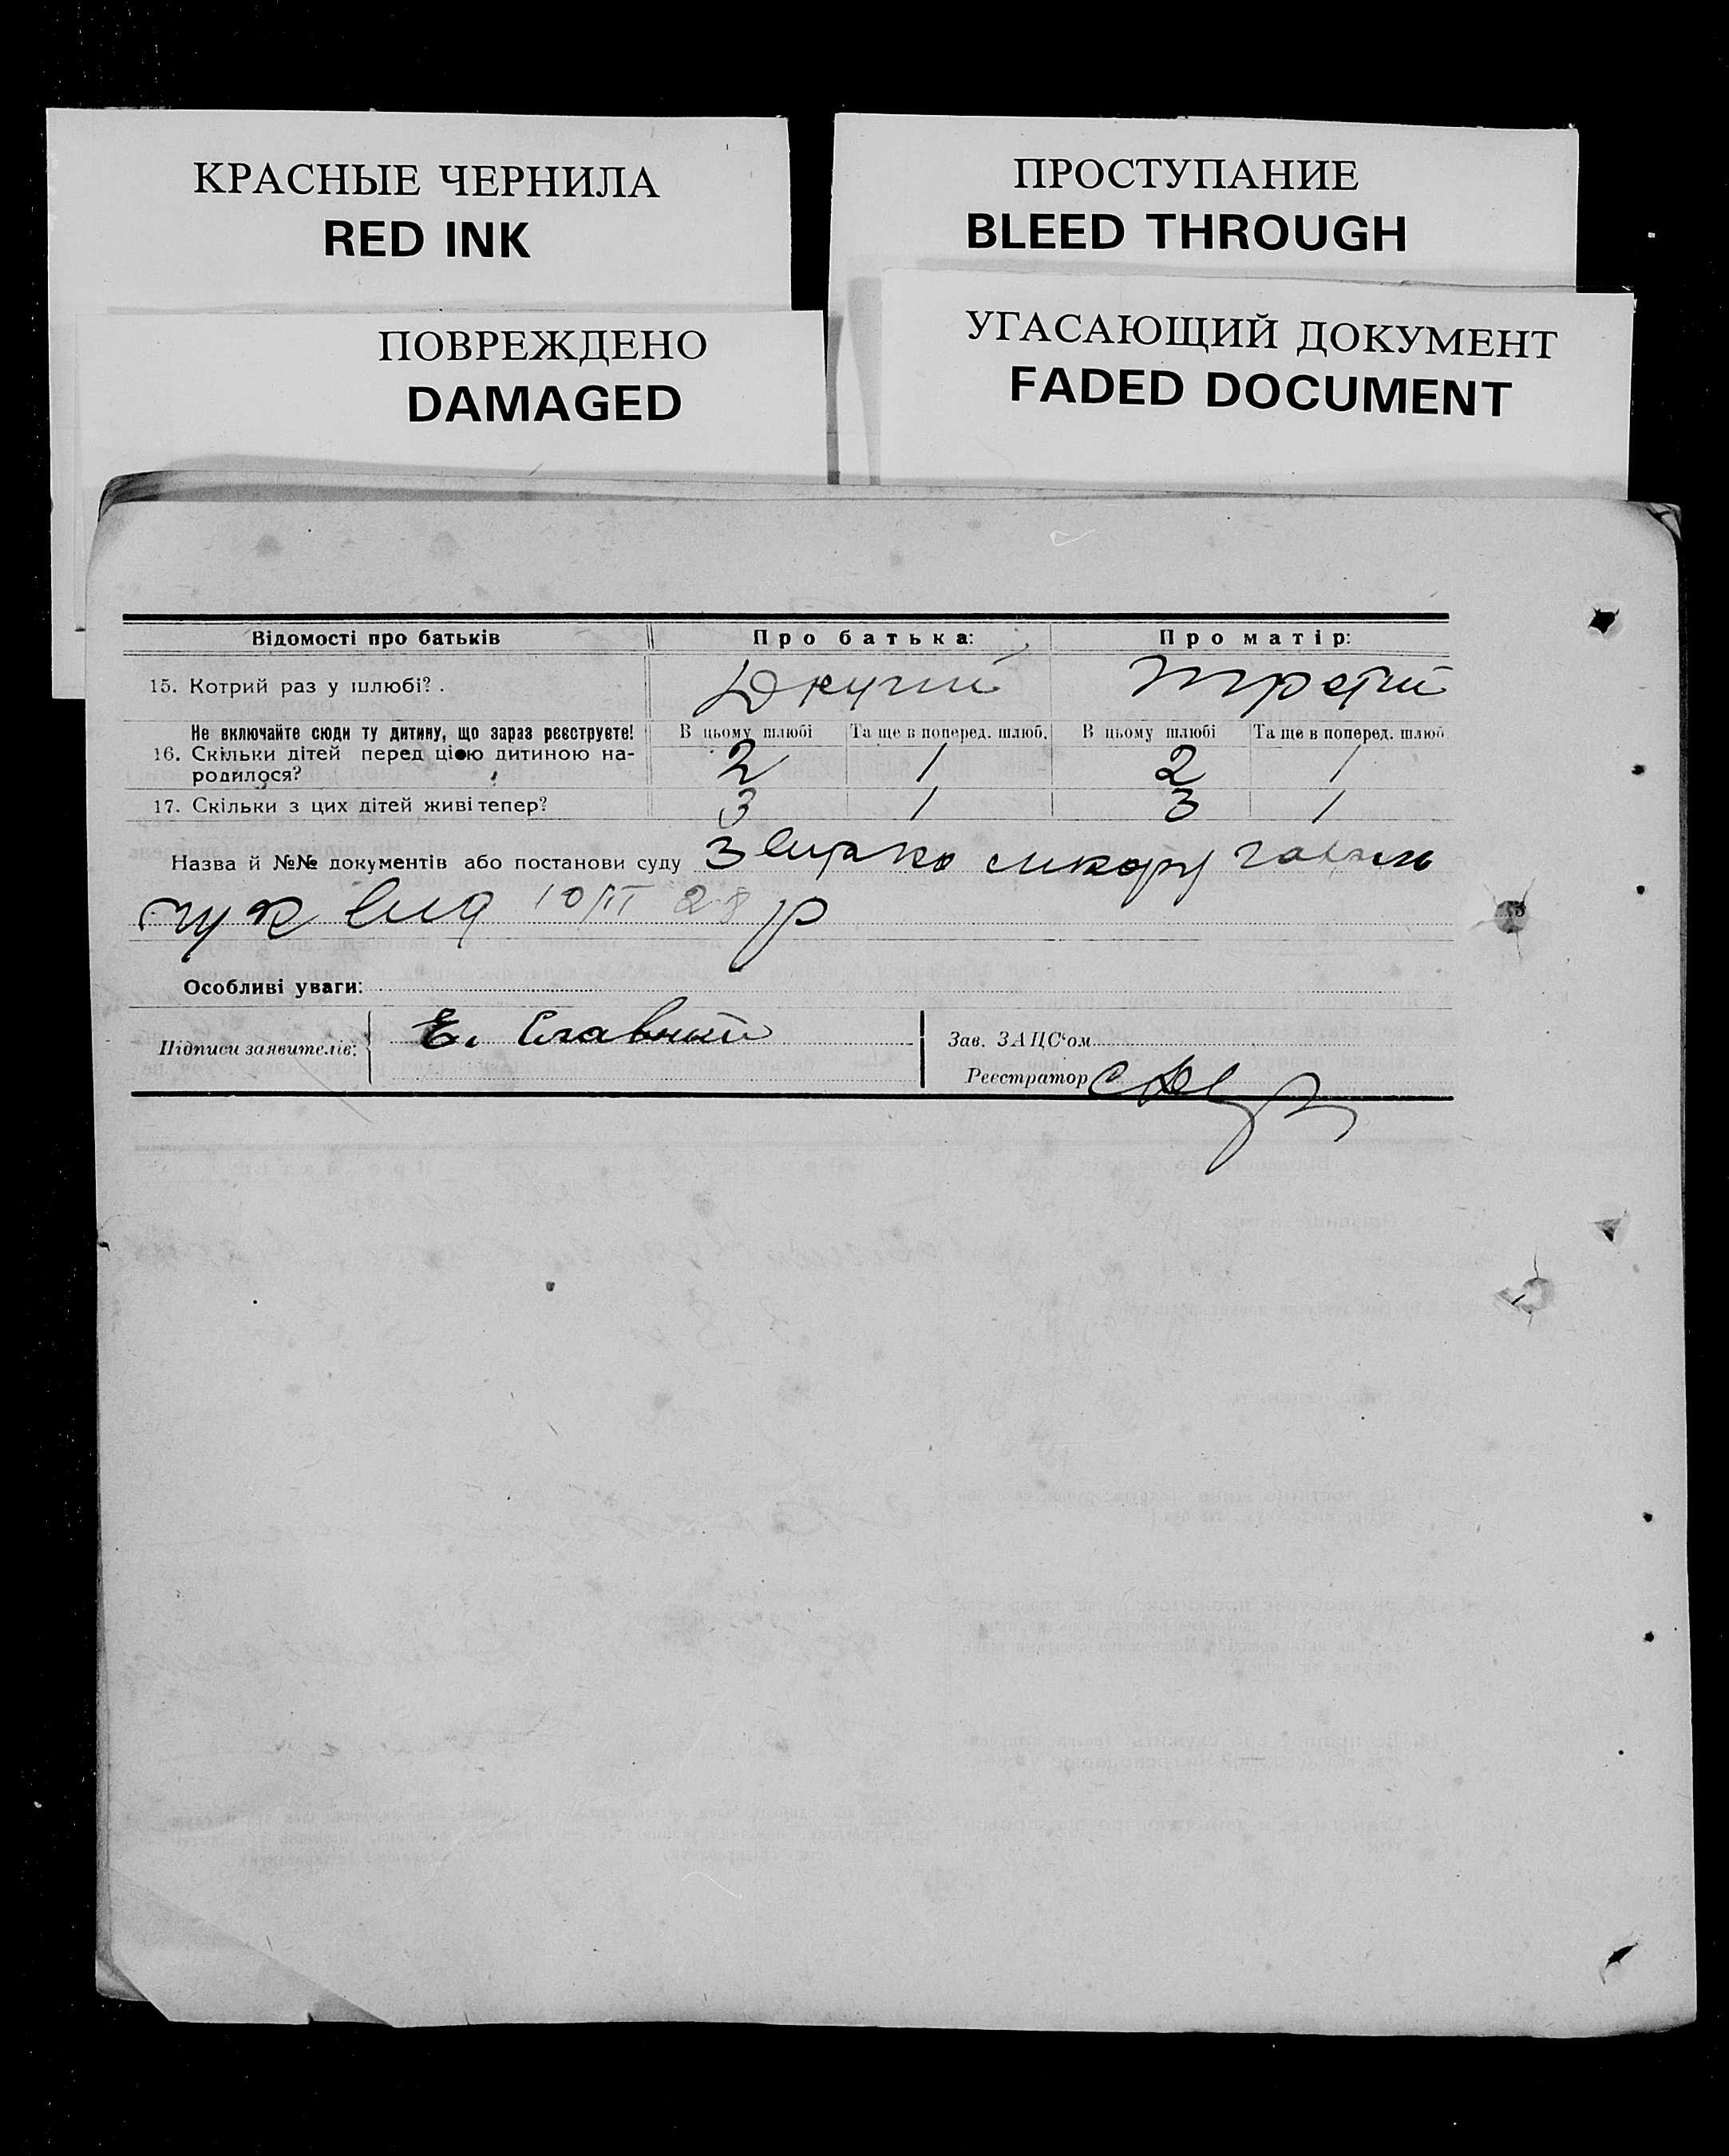 КРАСНЫЕ ЧЕРНИЛА
RED INK
ПРОСТУПАНИЕ
BLEED THROUGH
ПОВРЕЖДЕНО
DAMAGED
УГАСАЮЩИЙ ДОКУМЕНТ
FADED DOCUMENT
Відомості про батьків Про батька: Про матір:
15. Котрий раз у шлюбі? . Другий третий
Не включайте сюди ту дитину, що зараз реєструєте! В цьому шлюбі Та ще в поперед. шлюб. В цьому шлюбі Та ще в поперед. шлюб
16. Скільки дітей перед цією дитиною на- 2 1 2 1
родилося?
17. Скільки з цих дітей живі тепер? 3 1 3 1
Назва й №№ документів або постанови суду
від 10/II 28 р
Особливі уваги:
Підписи заявителів: Е. Славний
Зав. ЗАЦС'ом
Реєстратор